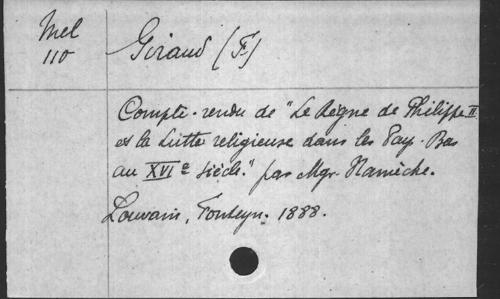 Mel
110
Giraud (F)
Compte-rendu de "Le Règne de Philippe II
et la Lutte religieuse dans les Pays-Bas
au XVIe Siècle." par Mgr. Namèche.
Louvain, Fonteyn. 1888.